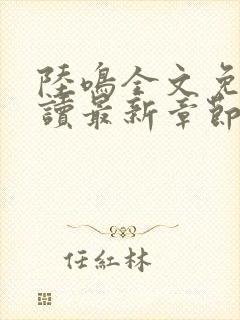 陸鳴全文免
讀最新章節
任紅林